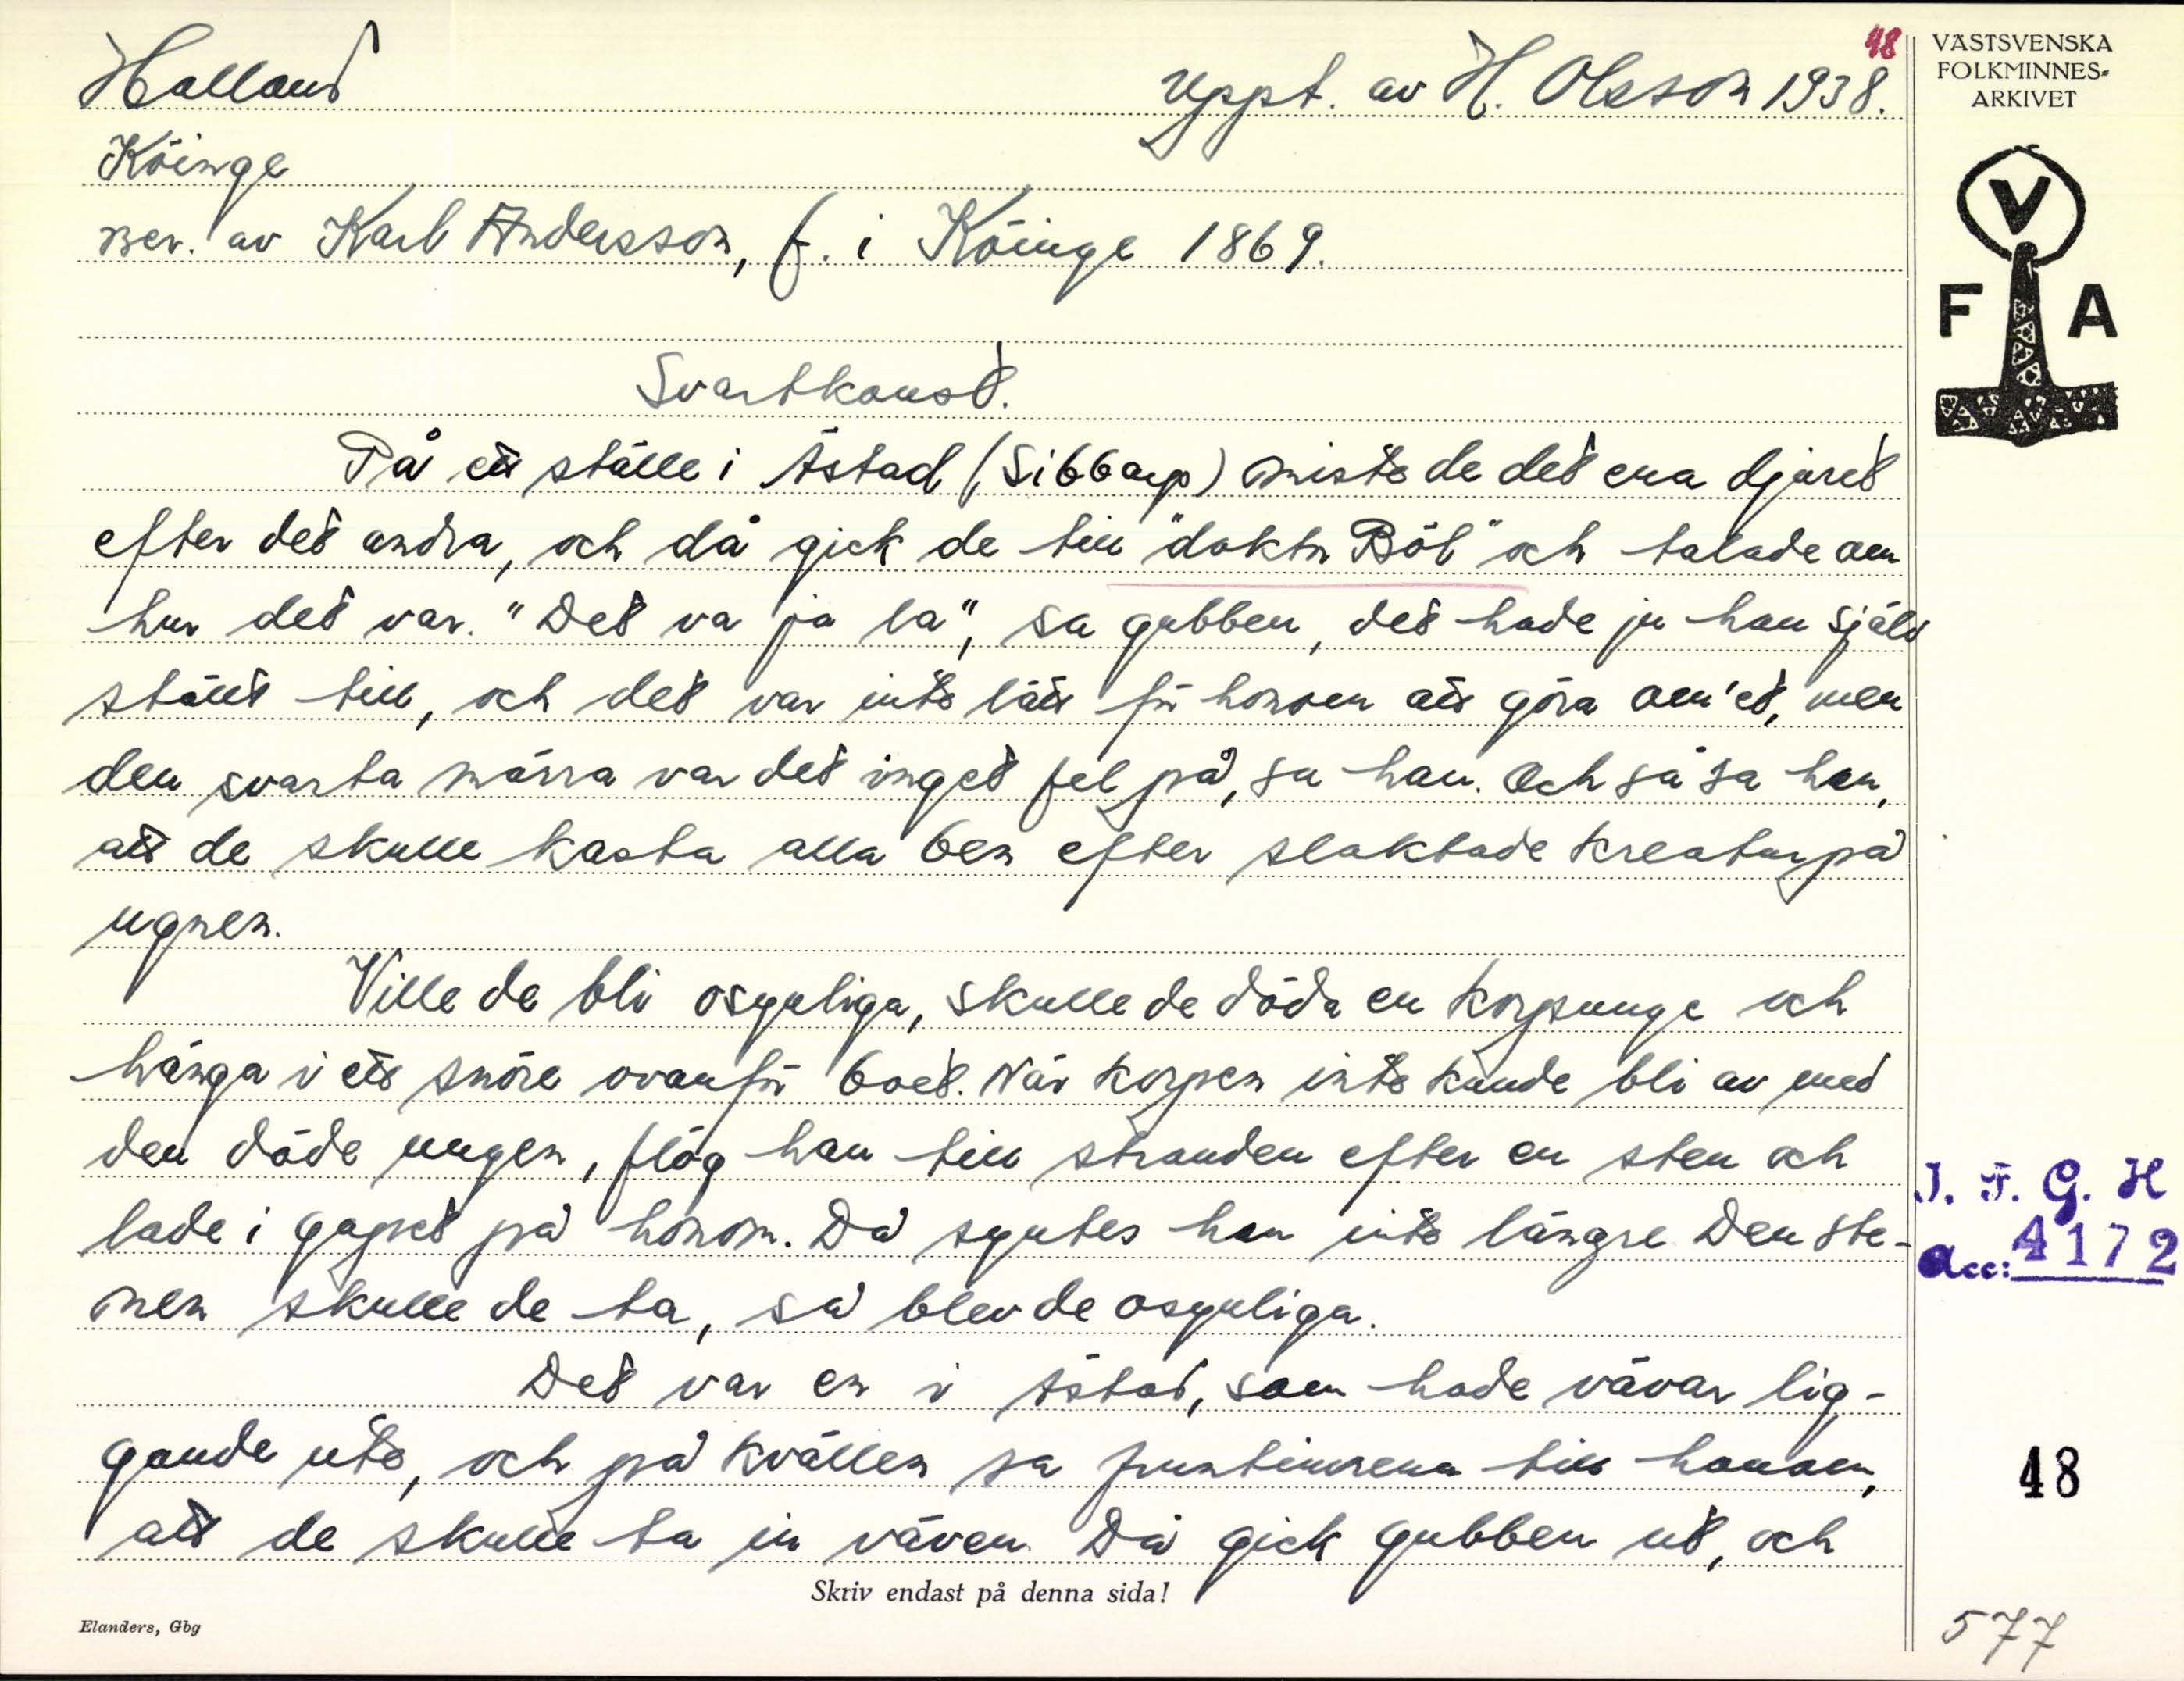 48
Halland
Uppt. av H. Olsson 1938.
VÄSTSVENSKA
FOLKMINNES-
ARKIVET
Köinge
V
F A
ber. av Karl Andersson, f. i Köinge 1869.
Svartkonst.
På ett ställe i Ästad (Sibbarp) miste de det ena djuret
efter det andra, och då gick de till "doktor Böl" och talade om
hur det var. "Det va ja la", sa gubben, det hade ju han själv
ställt till, och det var inte lätt för honom att göra om'et, men
den svarta märra var det inget fel på, sa han. Och så sa han,
att de skulle kasta alla ben efter slaktade kreatur på
ugnen.
Ville de bli osynliga, skulle de döda en korpunge och
hänga i ett snöre ovanför boet. När korpen inte kunde bli av med
den döde ungen, flög han till stranden efter en sten och
lade i gapet på honom. Då syntes han inte längre Den ste-
nen skulle de ta, så blev de osynliga.
I. F. G. H
Acc: 4172
Det var en i Ästad, som hade vävar lig-
gande ute, och på kvällen sa fruntimrena till honom,
att de skulle ta in väven. Då gick gubben ut, och
48
Skriv endast på denna sida!
Elanders, Gbg
577